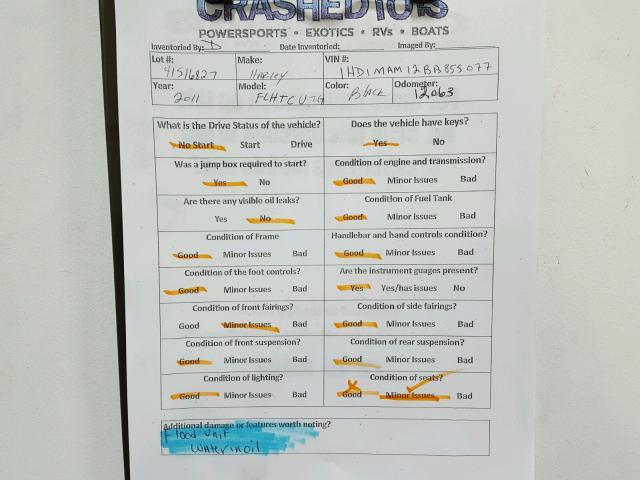 CRASHEDTOYS
POWERSPORTS • EXOTICS • RVs • BOATS
Inventoried By: D Date Inventoried: Imaged By:
Lot #: 41516827 Make: Harley VIN #: 1HD1MAM12BB855077
Year: 2011 Model: FLHTCUTG Color: Black Odometer: 12063
What is the Drive Status of the vehicle? Does the vehicle have keys?
No Start Start Drive Yes No
Was a jump box required to start? Condition of engine and transmission?
Yes No Good Minor Issues Bad
Are there any visible oil leaks? Condition of Fuel Tank
Yes No Good Minor Issues Bad
Condition of Frame Handlebar and hand controls condition?
Good Minor Issues Bad Good Minor Issues Bad
Condition of the foot controls? Are the instrument guages present?
Good Minor Issues Bad Yes Yes/has issues No
Condition of front fairings? Condition of side fairings?
Good Minor Issues Bad Good Minor Issues Bad
Condition of front suspension? Condition of rear suspension?
Good Minor Issues Bad Good Minor Issues Bad
Condition of lighting? Condition of seats?
Good Minor Issues Bad Good Minor Issues Bad
Additional damage or features worth noting?
Flood unit
Water in oil